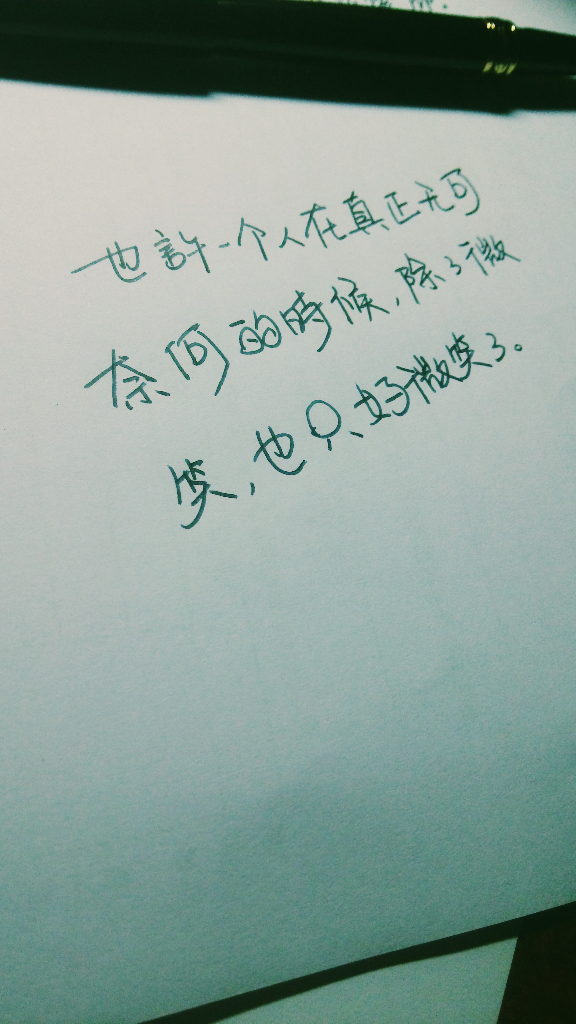 也許一个人在真正无可
奈何的時候，除了微
笑，也只好微笑了。